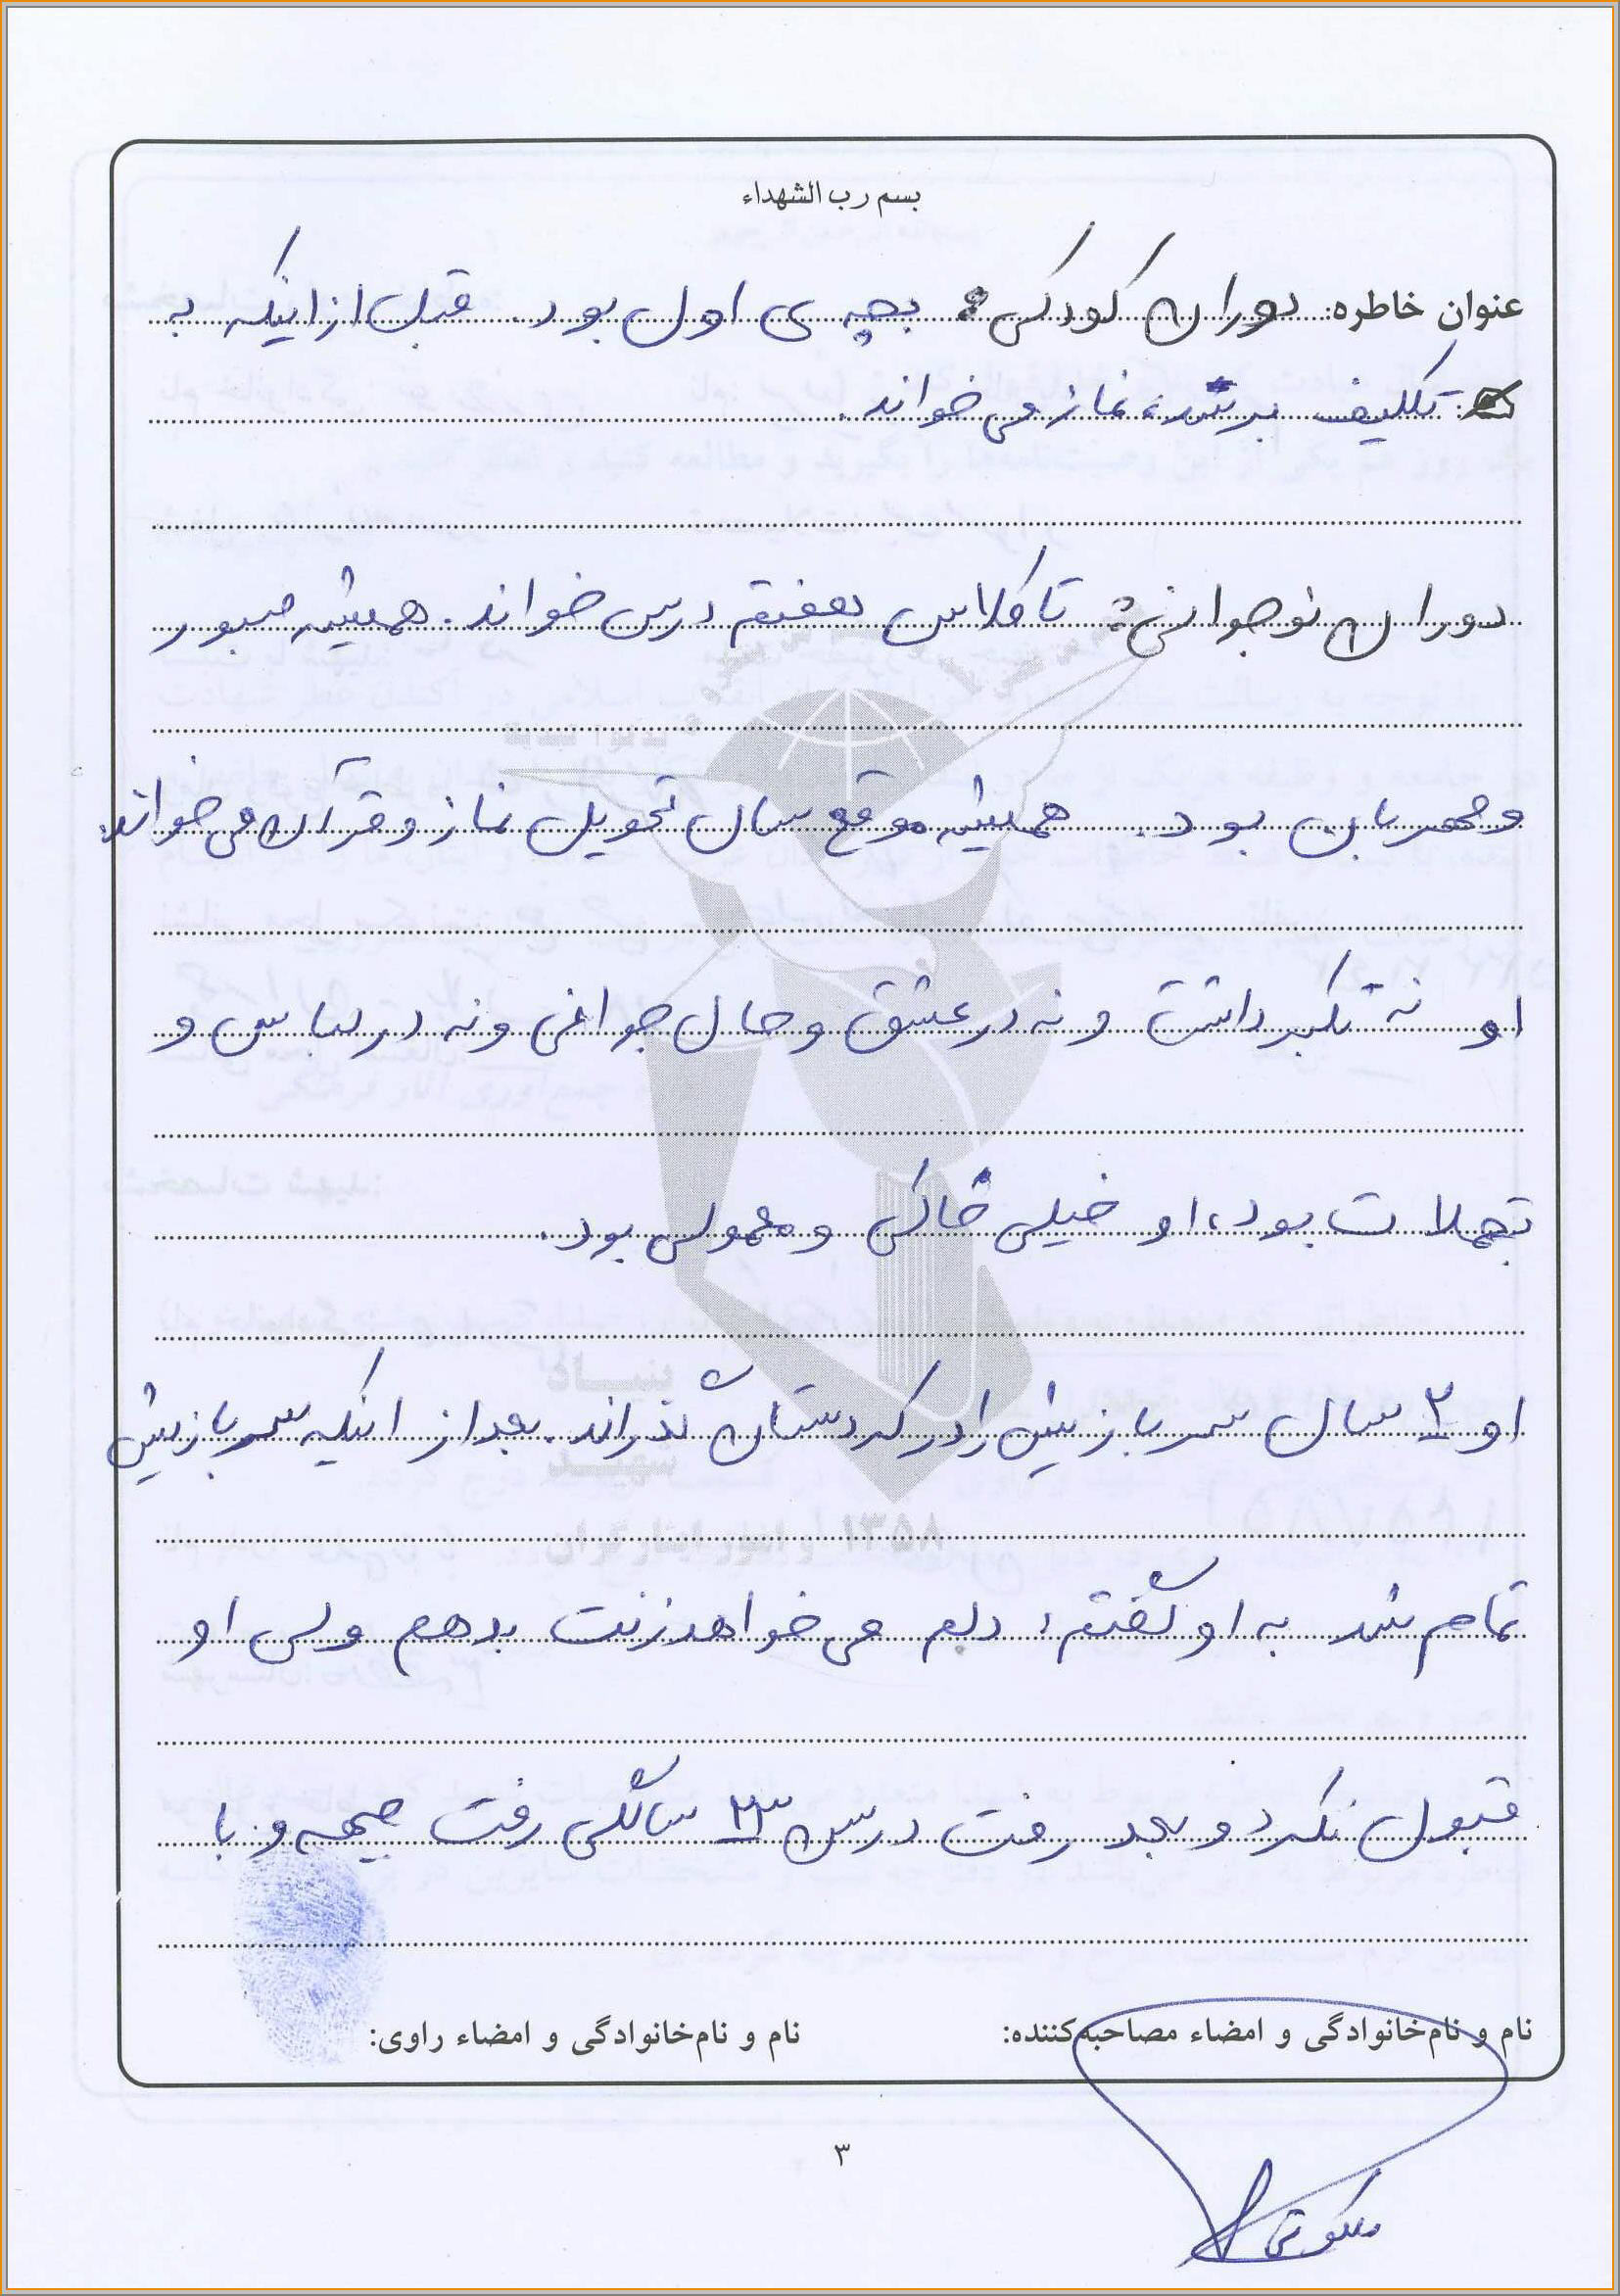 بسم رب الشهداء
عنوان خاطره: دوران کودکی: بچه ی اول بود. قبل از اینکه به
تکلیف برسد، نماز می خواند.
دوران نوجوانی: تا کلاس هفتم درس خواند. همیشه صبور
و مهربان بود. همیشه موقع سال تحویل نماز و قرآن می خواند.
او نه تکبر داشت و نه در عشق و حال جوانی و نه در لباس و
تجملات بود، او خیلی خاکی و معمولی بود.
او ۲ سال سربازیش را در کردستان گذراند. بعد از اینکه سربازیش
تمام شد به او گفتم: دلم می خواهد زنت بدهم ولی او
قبول نکرد و بعد رفت در سن ۲۳ سالگی رفت جبهه و با
نام و نام‌خانوادگی و امضاء مصاحبه‌کننده: نام و نام‌خانوادگی و امضاء راوی:
۳
ملکوتی
بنیاد
شهید
و امور ایثارگران ۱۳۵۸